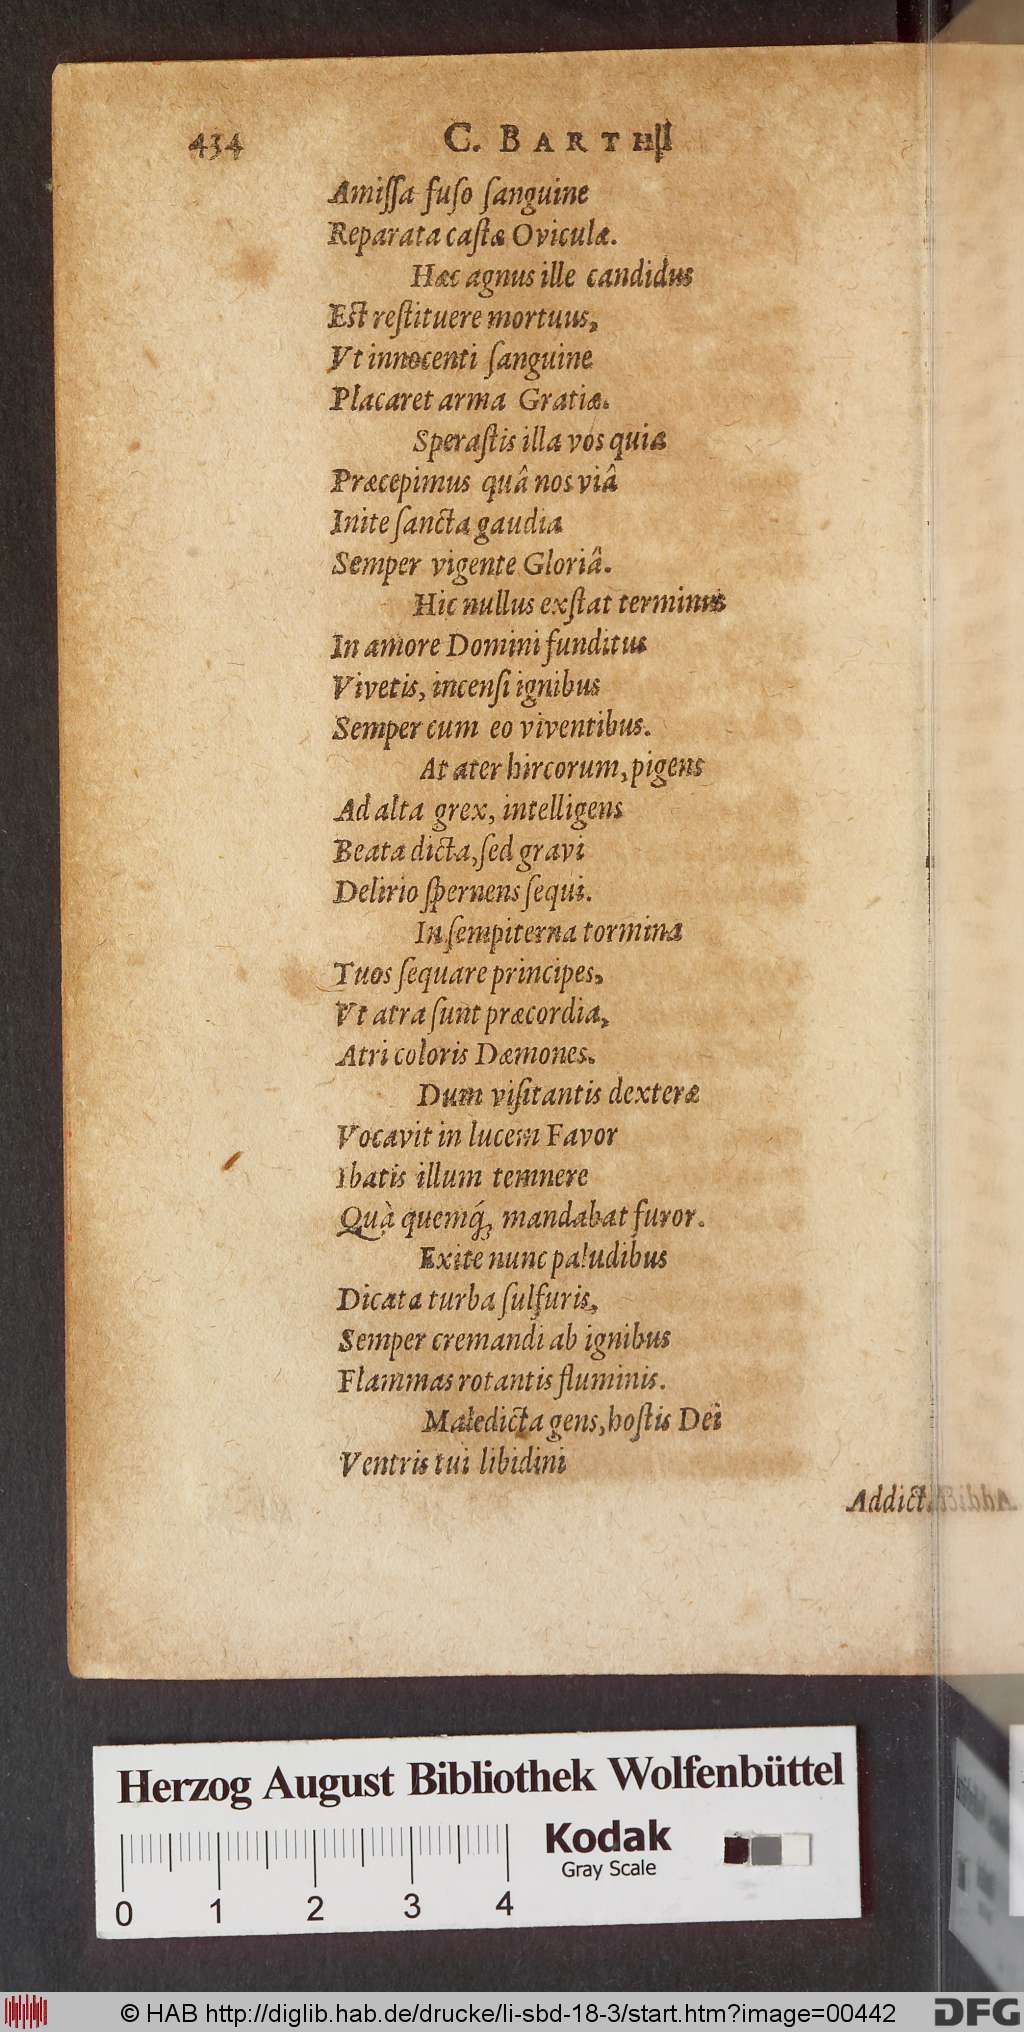 434 C. BARTHII
Amiſſa fuſo ſanguine
Reparata caſtæ Oviculæ.
Hæc agnus ille candidus
Eſt reſtituere mortuus,
Vt innocenti ſanguine
Placaret arma Gratiæ.
Speraſtis illa vos quia
Præcepimus quâ nos viâ
Inite ſancta gaudia
Semper vigente Gloriâ.
Hic nullus exſtat terminus
In amore Domini funditus
Vivetis, incenſi ignibus
Semper cum eo viventibus.
At ater hircorum, pigens
Ad alta grex, intelligens
Beata dicta, ſed gravi
Delirio ſpernens ſequi.
In ſempiterna tormina
Tuos ſequare principes,
Vt atra ſunt præcordia,
Atri coloris Dæmones.
Dum viſitantis dexteræ
Vocavit in lucem Favor
Ibatis illum temnere
Quà quemq́; mandabat furor.
Exite nunc paludibus
Dicata turba ſulfuris,
Semper cremandi ab ignibus
Flammas rotantis fluminis.
Maledicta gens, hoſtis Dei
Ventris tui libidini
Addict
Herzog August Bibliothek Wolfenbüttel
Kodak
Gray Scale
0 1 2 3 4
© HAB http://diglib.hab.de/drucke/li-sbd-18-3/start.htm?image=00442 DFG